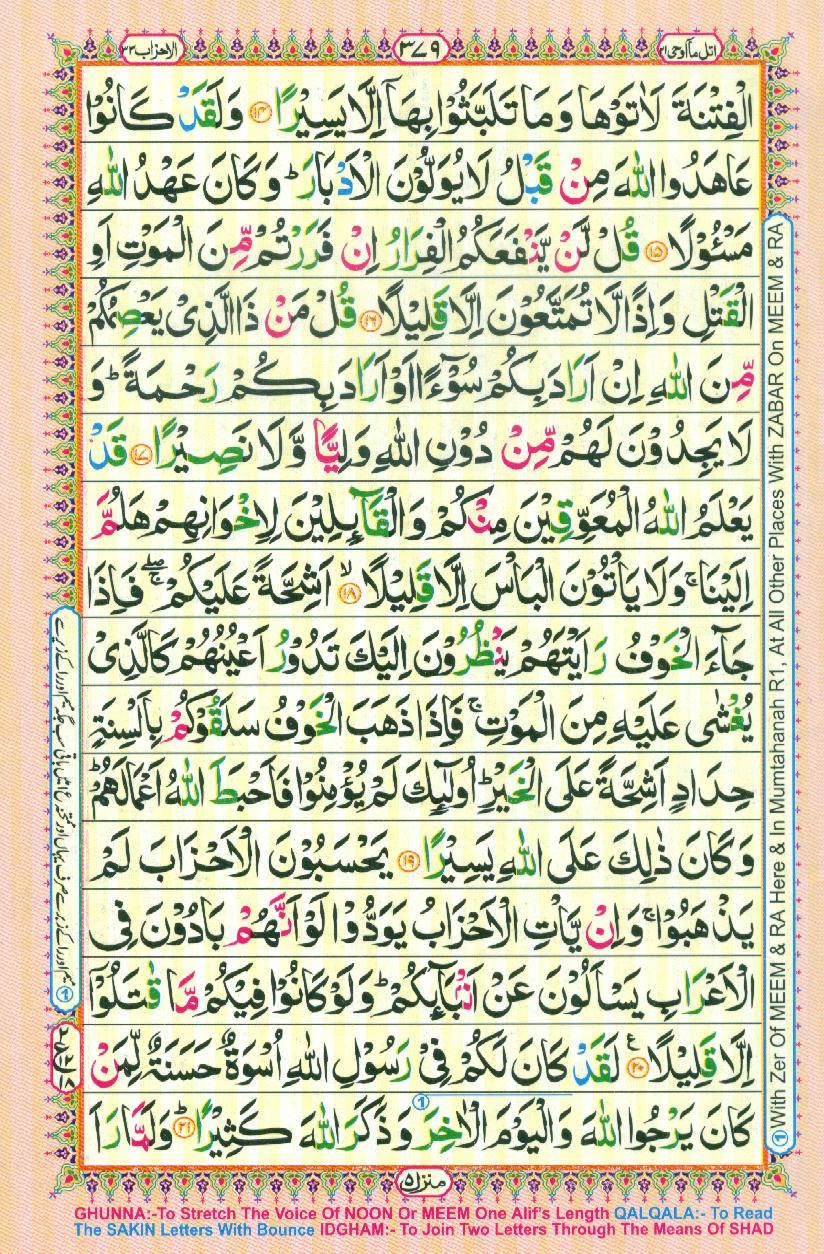 اتل مآاوحی ۲۱
۳۷۹
الاحزاب ۳۳
الْفِتْنَةَ لَاٰتَوْهَا وَمَا تَلَبَّثُوْا بِهَاۤ اِلَّا يَسِيْرًا ۝۱۴ وَلَقَدْ كَانُوْا
عَاهَدُوا اللّٰهَ مِنْ قَبْلُ لَا يُوَلُّوْنَ الْاَدْبَارَ ؕ وَكَانَ عَهْدُ اللّٰهِ
مَسْـُٔوْلًا ۝۱۵ قُلْ لَّنْ يَّنْفَعَكُمُ الْفِرَارُ اِنْ فَرَرْتُمْ مِّنَ الْمَوْتِ اَوِ
الْقَتْلِ وَاِذًا لَّا تُمَتَّعُوْنَ اِلَّا قَلِيْلًا ۝۱۶ قُلْ مَنْ ذَا الَّذِىْ يَعْصِمُكُمْ
مِّنَ اللّٰهِ اِنْ اَرَادَ بِكُمْ سُوْٓءًا اَوْ اَرَادَ بِكُمْ رَحْمَةً ؕ وَ
لَا يَجِدُوْنَ لَهُمْ مِّنْ دُوْنِ اللّٰهِ وَلِيًّا وَّلَا نَصِيْرًا ۝۱۷ قَدْ
يَعْلَمُ اللّٰهُ الْمُعَوِّقِيْنَ مِنْكُمْ وَالْقَآٮِٕلِيْنَ لِاِخْوَانِهِمْ هَلُمَّ
اِلَيْنَا ۚ وَلَا يَاْتُوْنَ الْبَاْسَ اِلَّا قَلِيْلًا ۙ۝۱۸ اَشِحَّةً عَلَيْكُمْ ۖۚ فَاِذَا
جَآءَ الْخَوْفُ رَاَيْتَهُمْ يَنْظُرُوْنَ اِلَيْكَ تَدُوْرُ اَعْيُنُهُمْ كَالَّذِىْ
يُغْشٰى عَلَيْهِ مِنَ الْمَوْتِ ۚ فَاِذَا ذَهَبَ الْخَوْفُ سَلَقُوْكُمْ بِاَلْسِنَةٍ
حِدَادٍ اَشِحَّةً عَلَى الْخَيْرِ ؕ اُولٰٓٮِٕكَ لَمْ يُؤْمِنُوْا فَاَحْبَطَ اللّٰهُ اَعْمَالَهُمْ ؕ
وَكَانَ ذٰلِكَ عَلَى اللّٰهِ يَسِيْرًا ۝۱۹ يَحْسَبُوْنَ الْاَحْزَابَ لَمْ
يَذْهَبُوْا ۚ وَاِنْ يَّاْتِ الْاَحْزَابُ يَوَدُّوْا لَوْ اَنَّهُمْ بَادُوْنَ فِى
الْاَعْرَابِ يَسْاَلُوْنَ عَنْ اَنْۢبَآٮِٕكُمْ ؕ وَلَوْ كَانُوْا فِيْكُمْ مَّا قٰتَلُوْۤا
اِلَّا قَلِيْلًا ۝۲۰ لَقَدْ كَانَ لَكُمْ فِىْ رَسُوْلِ اللّٰهِ اُسْوَةٌ حَسَنَةٌ لِّمَنْ
كَانَ يَرْجُوا اللّٰهَ وَالْيَوْمَ الْاٰخِرَ وَذَكَرَ اللّٰهَ كَثِيْرًا ؕ۝۲۱ وَلَمَّا رَاَ
① With Zer Of MEEM & RA Here & In Mumtahanah R1, At All Other Places With ZABAR On MEEM & RA
منزل ۵
GHUNNA:-To Stretch The Voice Of NOON Or MEEM One Alif's Length QALQALA:- To Read
The SAKIN Letters With Bounce IDGHAM:- To Join Two Letters Through The Means Of SHAD